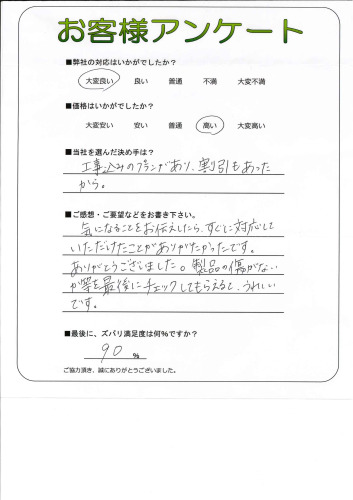 お客様アンケート
■弊社の対応はいかがでしたか？
大変良い 良い 普通 不満 大変不満
■価格はいかがでしたか？
大変安い 安い 普通 高い 大変高い
■当社を選んだ決め手は？
工事込みのプランがあり、割引もあった
から。
■ご感想・ご要望などをお書き下さい。
気になることをお伝えしたら、すぐに対応して
いただけたことがありがたかったです。
ありがとうございました。製品の傷がない
か等を最後にチェックしてもらえると、うれしい
です。
■最後に、ズバリ満足度は何%ですか？
90 %
ご協力頂き、誠にありがとうございました。